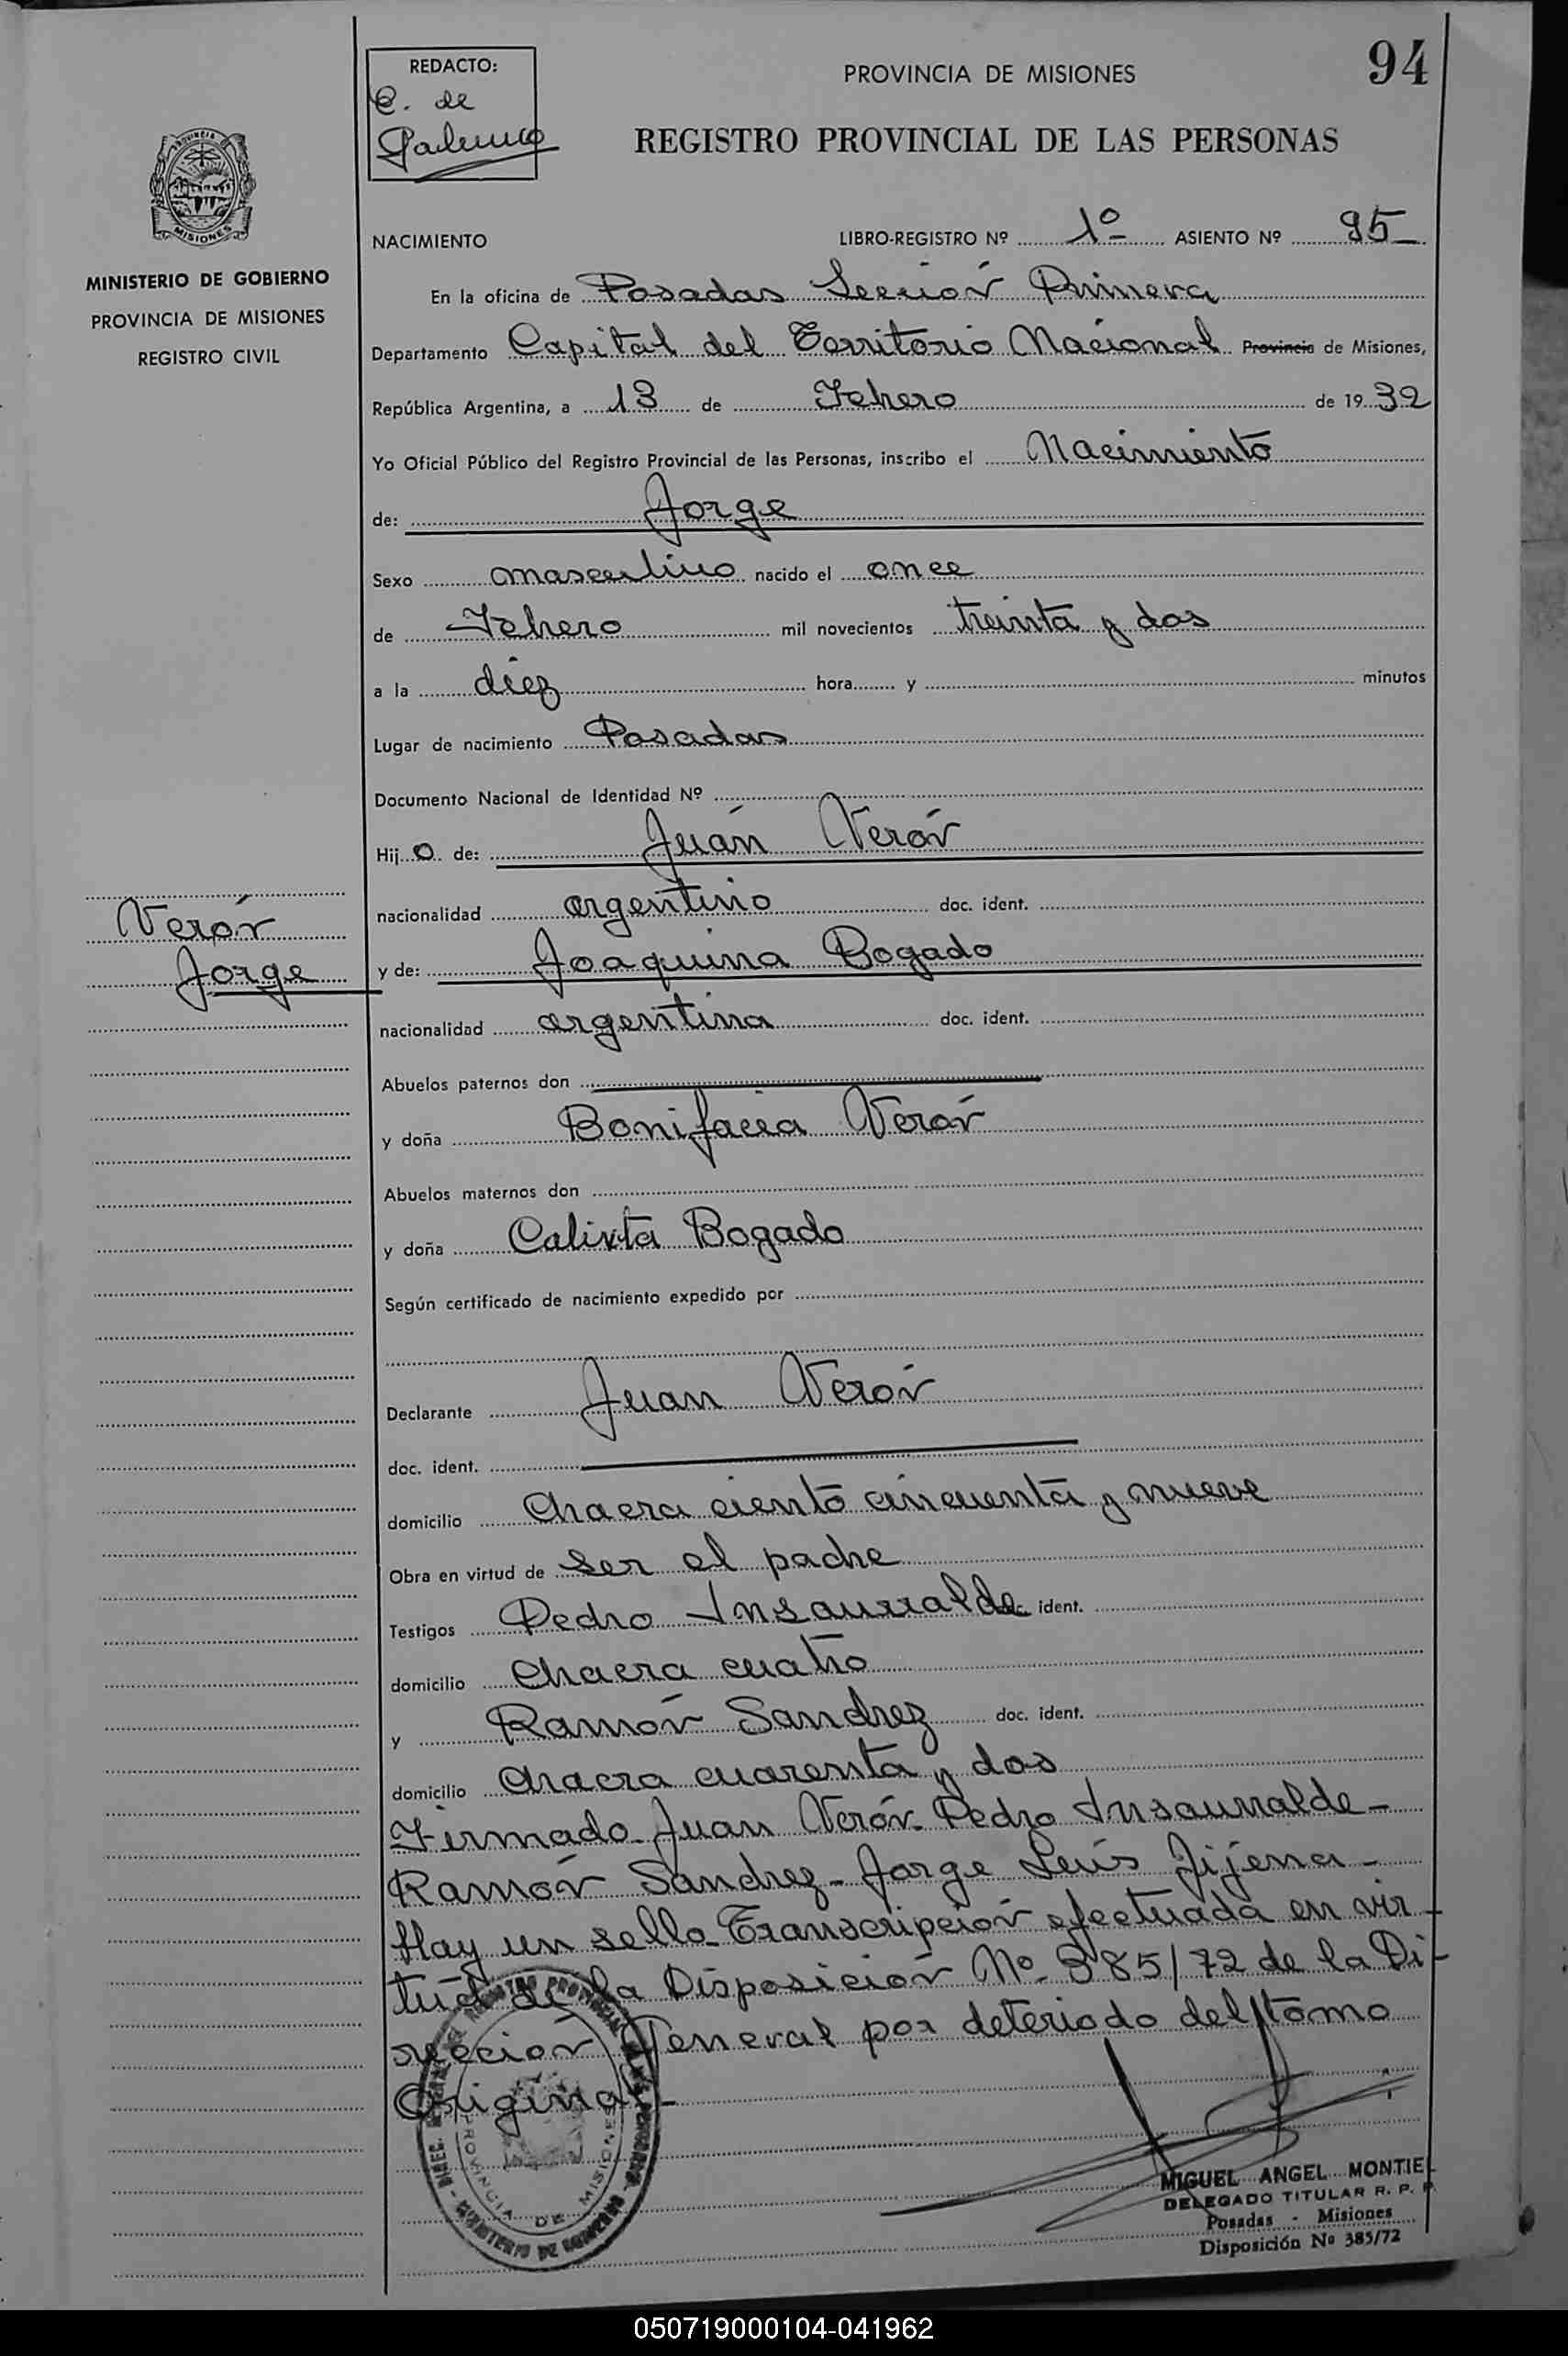 REDACTO:
C. de
Palermo
PROVINCIA DE MISIONES
94
REGISTRO PROVINCIAL DE LAS PERSONAS
MISIONES
MINISTERIO DE GOBIERNO
PROVINCIA DE MISIONES
REGISTRO CIVIL
NACIMIENTO LIBRO-REGISTRO Nº 1º ASIENTO Nº 95
En la oficina de Posadas Sección Primera
Departamento Capital del Territorio Nacional Provincia de Misiones,
República Argentina, a 13 de Febrero de 1932
Yo Oficial Público del Registro Provincial de las Personas, inscribo el Nacimiento
de: Jorge
Sexo masculino nacido el once
de Febrero mil novecientos treinta y dos
a la diez hora y minutos
Lugar de nacimiento Posadas
Documento Nacional de Identidad Nº
Hij o de: Juan Verón
nacionalidad argentino doc. ident.
Verón
Jorge
y de: Joaquina Bogado
nacionalidad argentina doc. ident.
Abuelos paternos don
y doña Bonifacia Verón
Abuelos maternos don
y doña Calixta Bogado
Según certificado de nacimiento expedido por
Declarante Juan Verón
doc. ident.
domicilio Chacra ciento cincuenta y nueve
Obra en virtud de ser el padre
Testigos Pedro Insaurralde doc. ident.
domicilio Chacra cuatro
y Ramón Sandrez doc. ident.
domicilio Chacra cuarenta y dos
Firmado Juan Verón. Pedro Insaurralde-
Ramón Sandrez- Jorge Luis Jijena-
Hay un sello- Transcripción efectuada en vir-
tud de la Disposición Nº 385/72 de la Di-
rección General por deteriodo del tomo
Original-
PROVINCIA DE MISIONES
MIGUEL ANGEL MONTIE
DELEGADO TITULAR R. P. P.
Posadas - Misiones
Disposición Nº 385/72
050719000104-041962